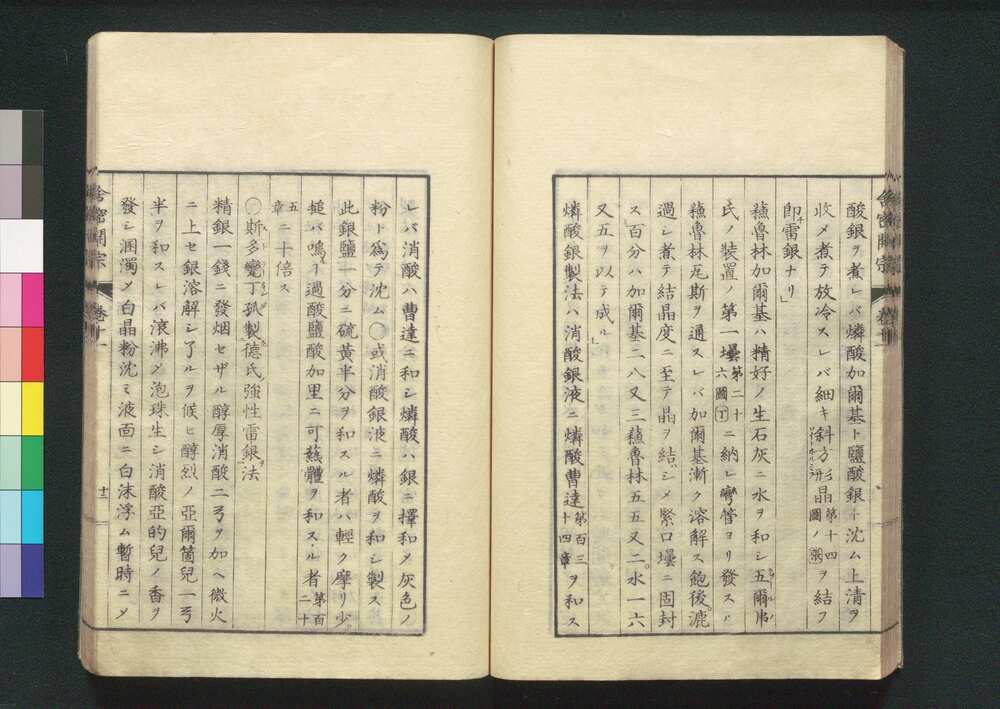 酸銀ヲ煮レバ燐酸加爾基ト鹽酸銀ト沈ム上清ヲ
收メ煮テ放冷スレバ細キ斜方形晶第十四圖ノヲ結フ
即雷銀ナリ」
䕷魯林加爾基ハ精好ノ生石灰ニ水ヲ和シ五爾弗
氏ノ裝置ノ第一壜第二十六圖丁ニ納レ彎管ヨリ發スル
䕷魯林瓦斯ヲ通スレバ加爾基漸ク溶解ス飽後漉
過シ煮テ結晶度ニ至テ晶ヲ結シメ緊口壜ニ固封
ス」百分ハ加爾基二八又三䕷魯林五五又二。水一六
又五ヲ以テ成ル」
燐酸銀製法ハ消酸銀液ニ燐酸曹達第百三十四章ヲ和ス
レバ消酸ハ曹達ニ和シ燐酸ハ銀ニ擇和メ灰色ノ
粉ト爲テ沈ム○或消酸銀液ニ燐酸ヲ和シ製ス
此銀鹽一分ニ硫黄半分ヲ和スル者ハ輕ク摩リ少
槌バ鳴ルヿ過酸鹽酸加里ニ可蓺體ヲ和スル者第百二十
五章ニ十倍ス
○斯多蠻丁孤製德氏強性雷銀法
精銀一錢ニ發烟セザル醇厚消酸二弓ヲ加ヘ微火
ニ上セ銀溶解シ了ルヲ候ヒ醇烈ノ亞爾箇兒一弓
半ヲ和スレバ滾沸メ泡珠生シ消酸亞的兒ノ香ヲ
發シ溷濁メ白晶粉沈ミ液面ニ白沫浮ム暫時ニメ
舎密開宗
卷十一
十二